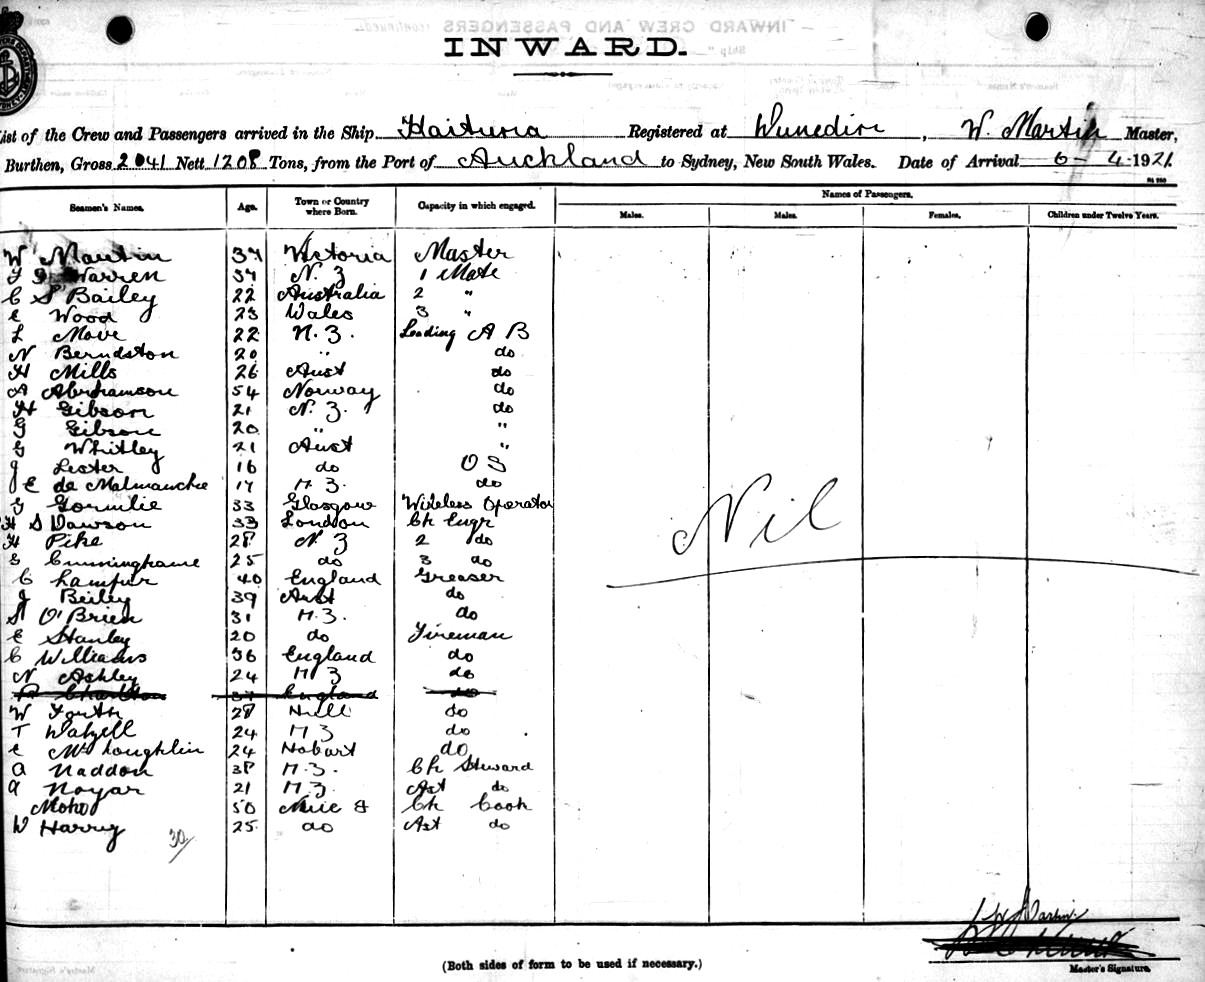 INWARD.
List of the Crew and Passengers arrived in the Ship Kaituna Registered at Dunedin, W. Martin Master,
Burthen, Gross 2041 Nett 1208 Tons, from the Port of Auckland to Sydney, New South Wales. Date of Arrival 6-4-1921
Names of Passengers.
Seamen's Names. Age. Town or Country where Born. Capacity in which engaged. Males. Males. Females. Children under Twelve Years.
W Martin 37 Victoria Master
Warren 37 N. Z 1 Mate
C S Bailey 22 Australia 2 "
E Wood 23 Wales 3 "
L Move 22 N. Z. Leading A B
N Berndston 20 " do
H Mills 26 Aust do
A Abrahamson 54 Norway do
H Gibson 21 N. Z. do
G Gibson 20 " "
G Whitley 21 Aust "
J Lester 16 do O S
J E de Malmanche 17 N Z. do
G Gormlie 33 Glasgow Wireless Operator
H S Dawson 33 London Ch Engr
H Pike 28 N. Z 2 do
G Cunninghame 25 do 3 do
C 40 England Greaser
J Beiley 39 Aust do
S O'Brien 31 N. Z. do
E Stanley 20 do Fireman
C Williams 36 England do
N Ashley 24 N Z do
Charlton 37 England do
W 28 Hull do
T Watzell 24 N Z do
E McLoughlin 24 Hobart do
A Naddon 38 N. Z. Ch Steward
A Noyar 21 N Z. Ast do
Moho 50 Ch Cook
W Harry 25 do Ast do
30
Nil
W Martin
Master's Signature.
(Both sides of form to be used if necessary.)